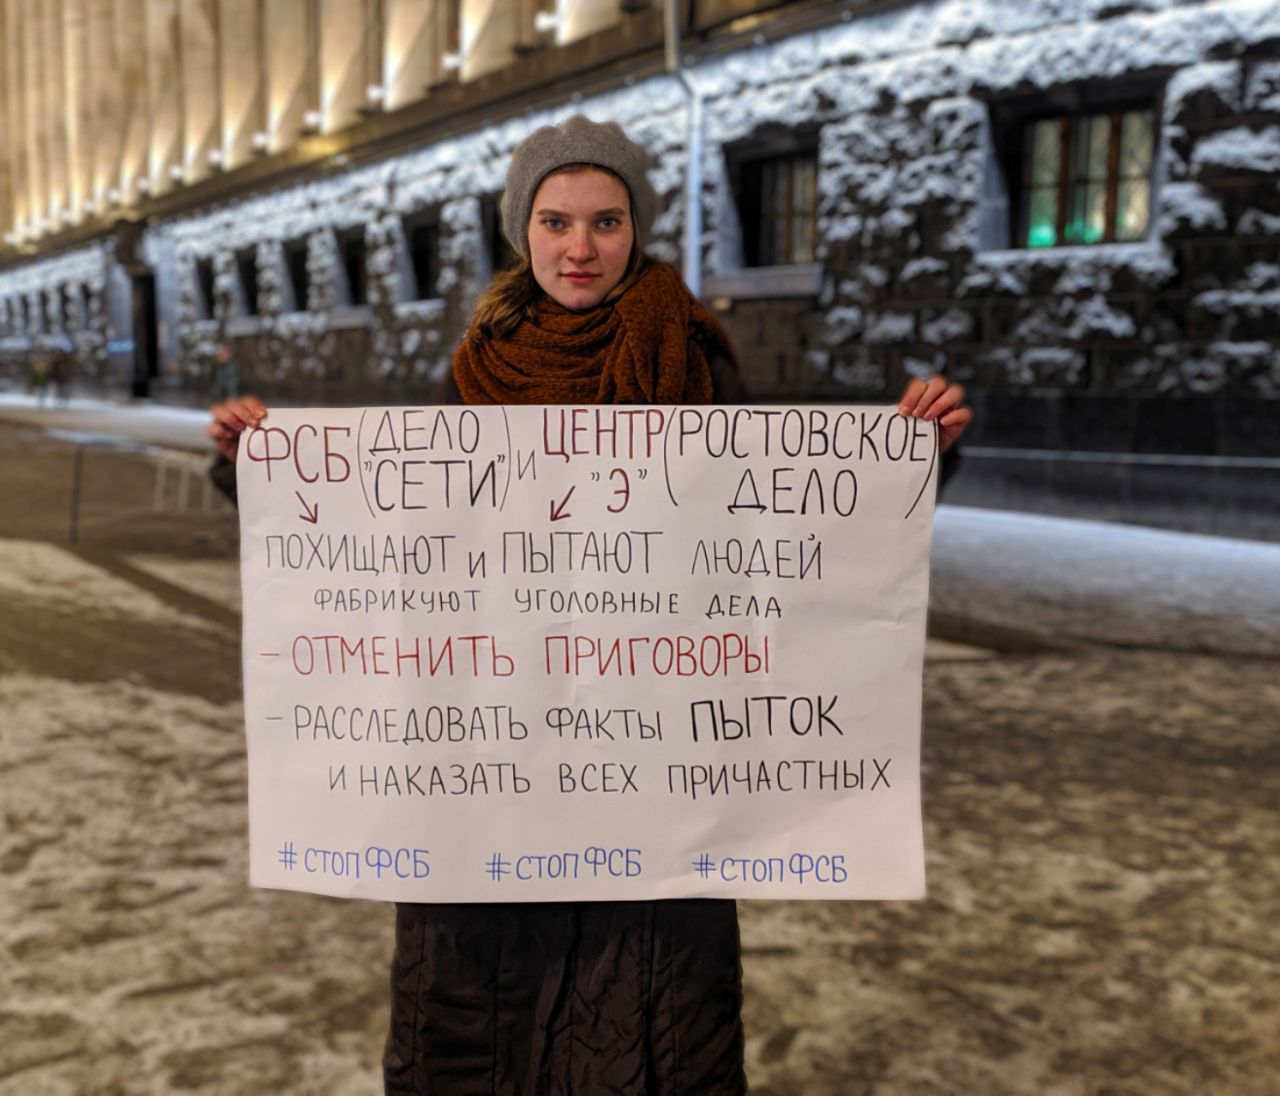 ФСБ (ДЕЛО "СЕТИ") И ЦЕНТР "Э" (РОСТОВСКОЕ ДЕЛО)
ПОХИЩАЮТ И ПЫТАЮТ ЛЮДЕЙ
ФАБРИКУЮТ УГОЛОВНЫЕ ДЕЛА
- ОТМЕНИТЬ ПРИГОВОРЫ
- РАССЛЕДОВАТЬ ФАКТЫ ПЫТОК
И НАКАЗАТЬ ВСЕХ ПРИЧАСТНЫХ
#СТОПФСБ #СТОПФСБ #СТОПФСБ